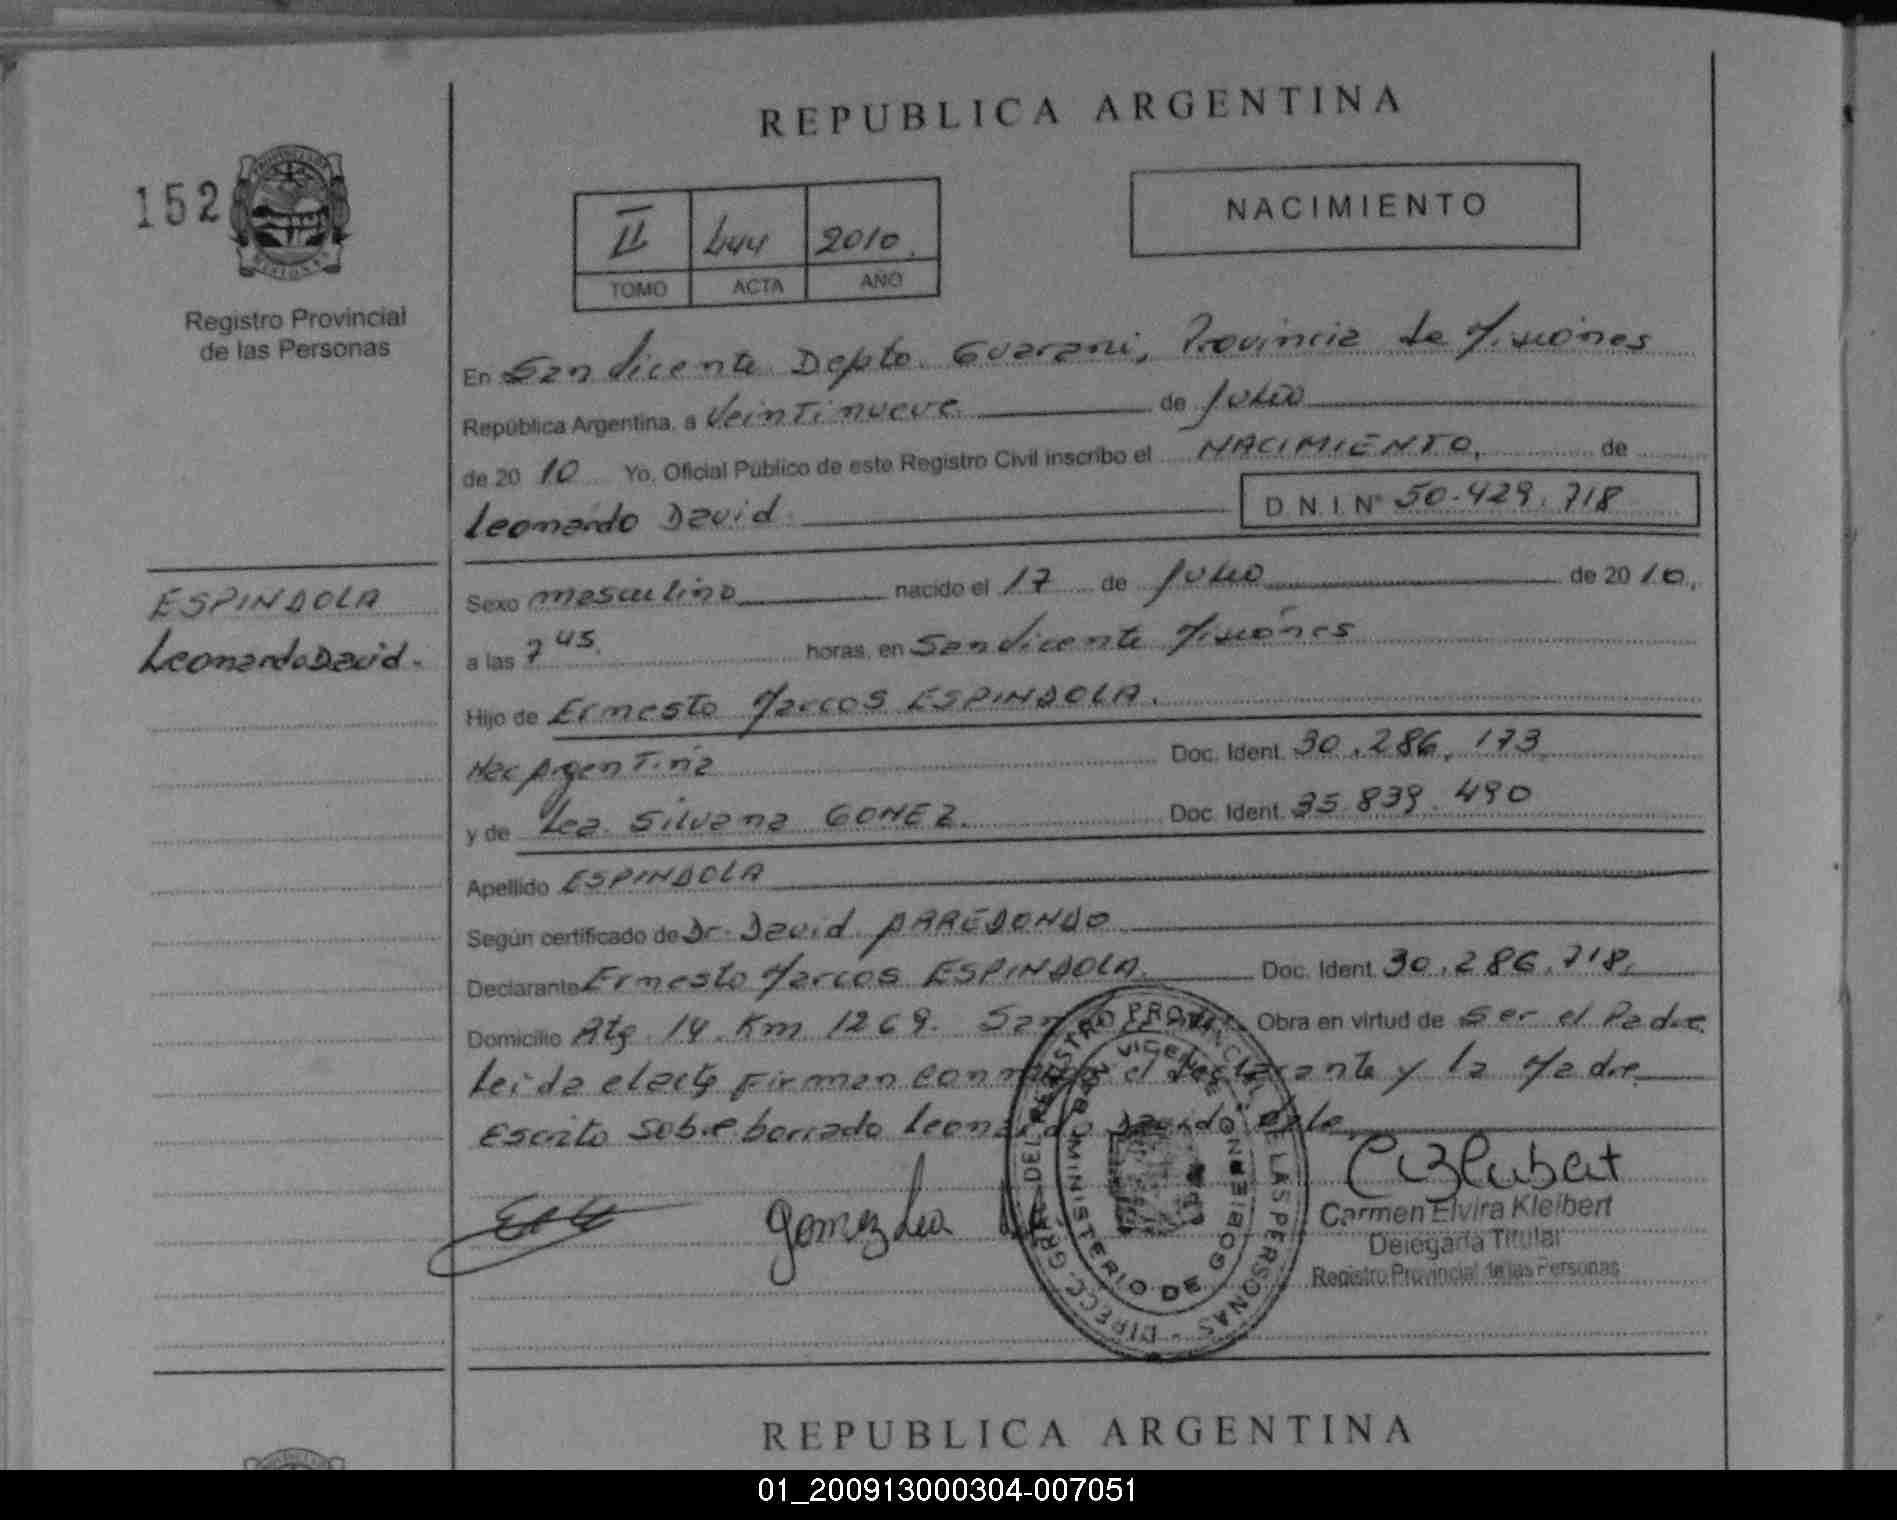 REPUBLICA ARGENTINA
152
NACIMIENTO
II 444 2010.
TOMO ACTA AÑO
Registro Provincial
de las Personas
En San Vicente Depto. Guarani, Provincia de Misiones
República Argentina, a Veintinueve de Julio
de 2010 Yo, Oficial Público de este Registro Civil inscribo el NACIMIENTO, de
Leonardo David D.N.I. Nº 50.429.718
ESPINDOLA
Leonardo David.
Sexo masculino nacido el 17 de Julio de 2010,
a las 7 45. horas, en San Vicente Misiones
Hijo de Ernesto Marcos ESPINDOLA.
Nac Argentina Doc. Ident. 30.286.173
y de Lea Silvana GOMEZ. Doc. Ident. 35.839.490
Apellido ESPINDOLA
Según certificado de Dr. David ARREDONDO
Declarante Ernesto Marcos ESPINDOLA. Doc. Ident. 30.286.718.
Domicilio Km 1269. San Obra en virtud de Ser el Padre
Leida el acta Firman el Declarante y la Madre
Escrito sobre borrado Leonardo vale
Gomez Lea
Carmen Elvira Kleibert
Delegada Titular
Registro Provincial de las Personas
DIRECC. GRAL. DEL REGISTRO PROVINCIAL DE LAS PERSONAS
MINISTERIO DE GOBIERNO
SAN VICENTE
REPUBLICA ARGENTINA
01_200913000304-007051